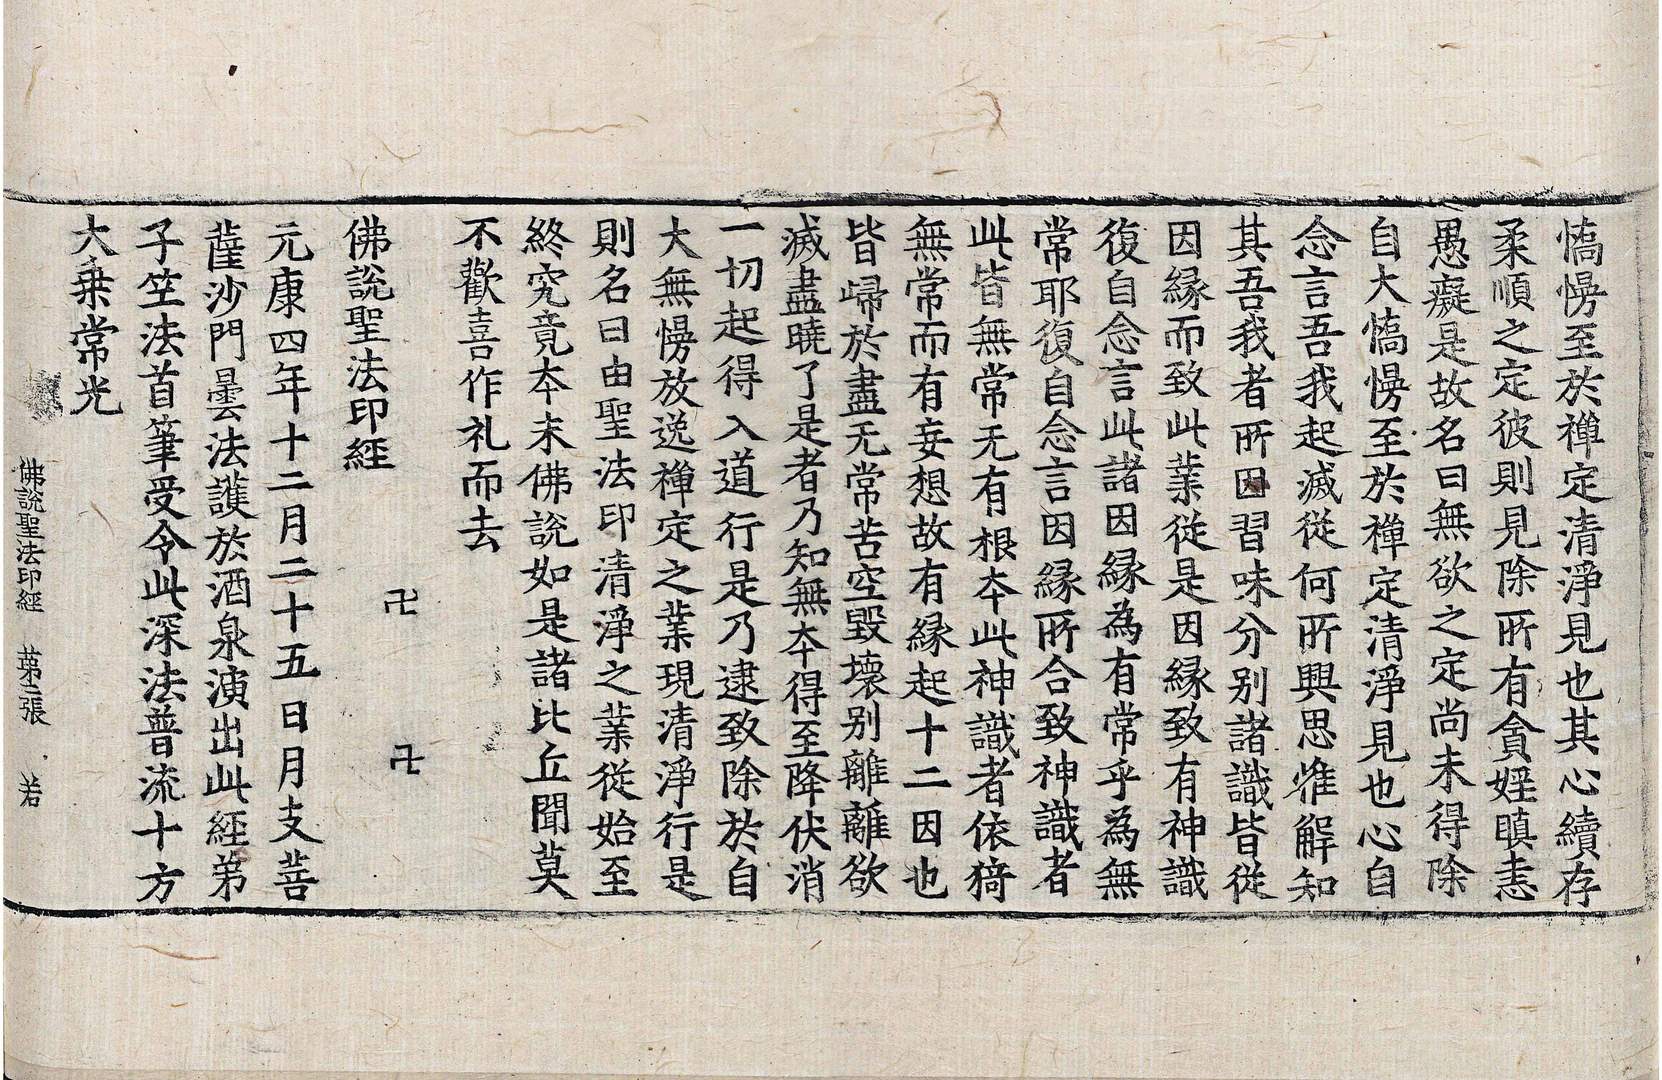 憍慢至於禪定清淨見也其心續存
柔順之定彼則見除所有貪婬瞋恚
愚癡是故名曰無欲之定尚未得除
自大憍慢至於禪定清淨見也心自
念言吾我起滅從何所興思惟解知
其吾我者所因習味分别諸識皆從
因縁而致此業從是因縁致有神識
復自念言此諸因縁為有常乎為無
常耶復自念言因縁所合致神識者
此皆無常无有根本此神識者依猗
無常而有妄想故有縁起十二因也
皆歸於盡无常苦空毀壞别離離欲
滅盡曉了是者乃知無本得至降伏消
一切起得入道行是乃逮致除於自
大無慢放逸禪定之業現清淨行是
則名曰由聖法印清淨之業從始至
終究竟本末佛說如是諸比丘聞莫
不歡喜作礼而去
卍 卍
佛說聖法印經
元康四年十二月二十五日月支菩
薩沙門曇法護於酒泉演出此經弟
子竺法首筆受令此深法普流十方
大乗常光
佛說聖法印經 第二張 若